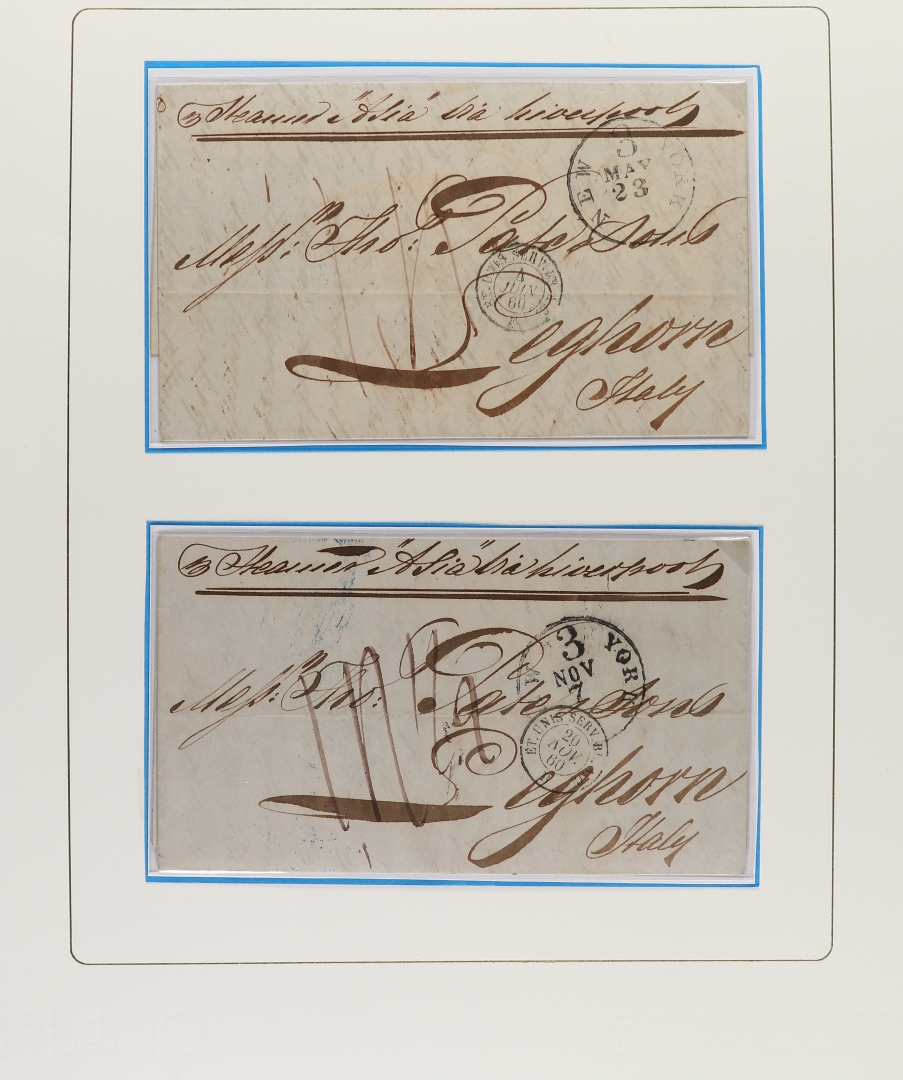 Steamer "Asia" via Liverpool
NEW YORK
3
MAY
23
Messrs. Tho: Pate & Sons
ET. UNIS SERV.
4
JUIN
60
Leghorn
Italy
Steamer "Asia" via Liverpool
YORK
3
NOV
7
Messrs. Tho: Pate & Sons
ET. UNIS SERV. BR.
20
NOV.
60
Leghorn
Italy